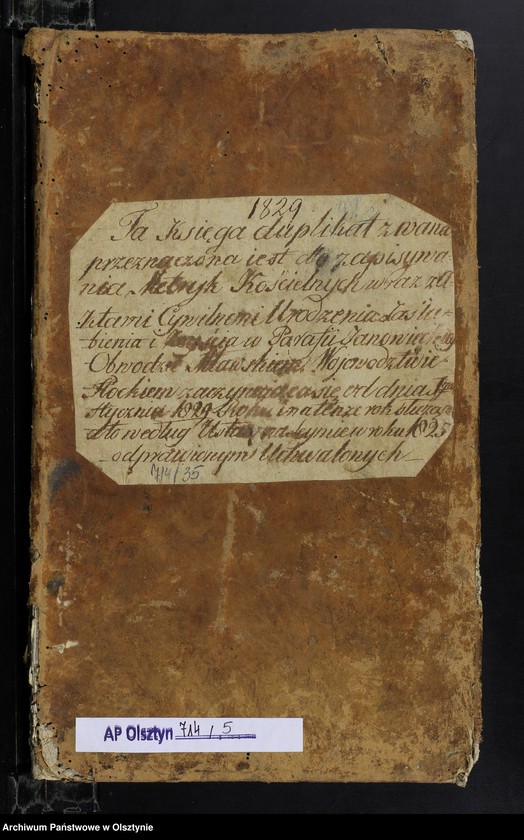 1829
Ta Księga duplikat zwana
przeznaczona iest do zapisywa-
nia Metryk Kościelnych wraz z A-
ktami Cywilnemi Urodzenia Zaślu-
bienia i w Parafii Janowieckiey
Obwodzie Mławskiem Woiewodztwie
Płockiem zaczynaiąca się od dnia 1go
Stycznia 1829 Roku i na tenże rok służąca
dto według Ustaw na Seymie w roku 1825
odprawionym Uchwalonych
714/35
AP Olsztyn 714 / 5
Archiwum Państwowe w Olsztynie